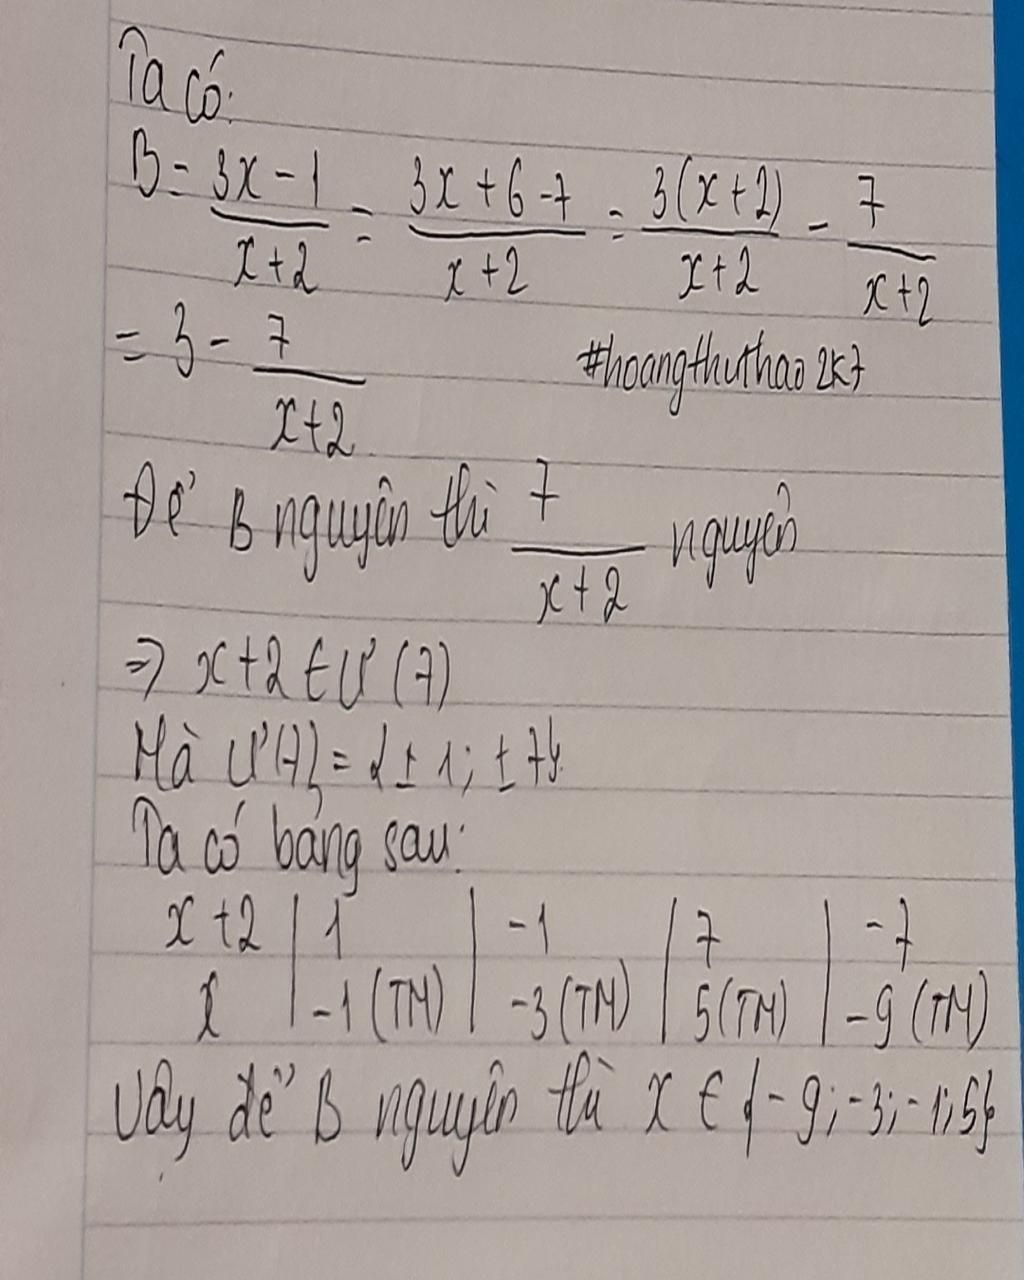 Ta có:
B = \frac{3x - 1}{x + 2} = \frac{3x + 6 - 7}{x + 2} = \frac{3(x + 2)}{x + 2} - \frac{7}{x + 2}
= 3 - \frac{7}{x + 2} #hoangthuthao2k7
Để B nguyên thì \frac{7}{x + 2} nguyên
=> x + 2 ∈ Ư (7)
Mà Ư(7) = {± 1; ± 7}.
Ta có bảng sau:
x + 2 | 1 | -1 | 7 | -7
x | -1 (TM) | -3 (TM) | 5 (TM) | -9 (TM)
Vậy để B nguyên thì x ∈ {-9; -3; -1; 5}